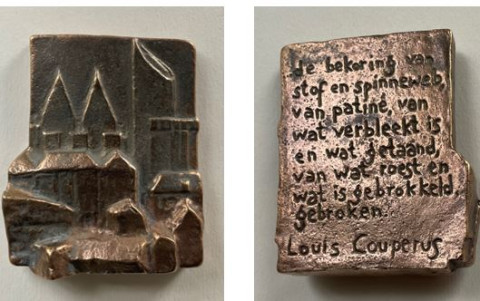 de bekoring van
stof en spinneweb,
van patine, van
wat verbleekt is
en wat getaand,
van wat roest en
wat is gebrokkeld,
gebroken.
Louis Couperus